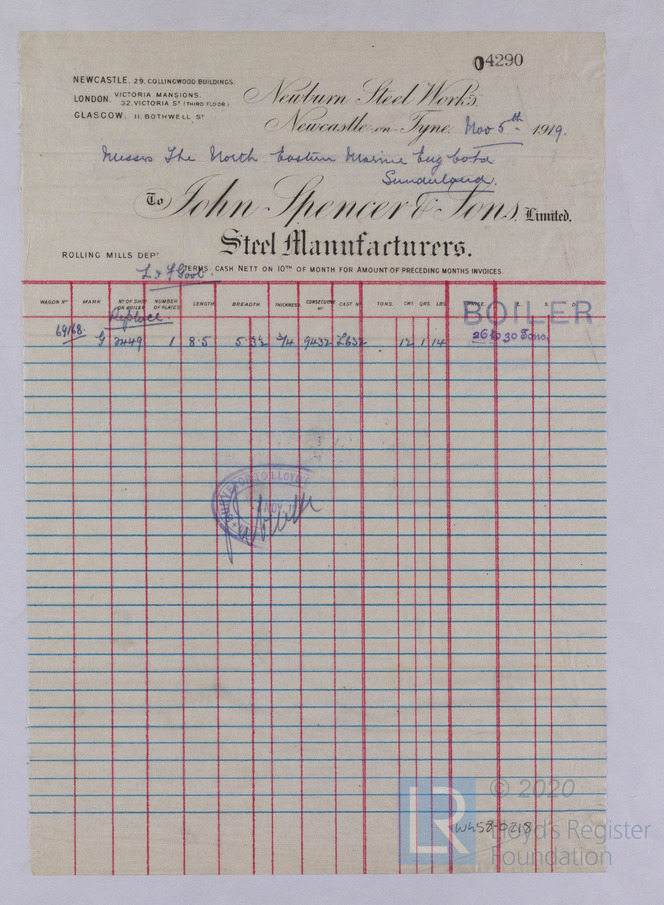 04290
NEWCASTLE. 29, COLLINGWOOD BUILDINGS.
LONDON. VICTORIA MANSIONS.
32, VICTORIA ST (THIRD FLOOR)
GLASGOW. 11, BOTHWELL ST
Newburn Steel Works,
Newcastle-on-Tyne, Nov 5th 1919.
Messrs The North Eastern Marine Eng Co Ltd
Sunderland.
To John Spencer & Sons, Limited.
Steel Manufacturers.
ROLLING MILLS DEPT
TERMS: CASH NETT ON 10TH OF MONTH FOR AMOUNT OF PRECEDING MONTHS INVOICES.
WAGON No MARK No OF SHIP OR BOILER NUMBER OF PLATES LENGTH BREADTH THICKNESS CONSECUTIVE No CAST No TONS. CWT QRS. LBS £ S
BOILER
Replace
69168 G 2449 1 8·5 5·3½ 3/4 9432 L632 12 1 14 26 to 30 Tons.
SURVEYOR TO LLOYD'S
NOV
© 2020
LR Lloyd's Register
Foundation
W458-0218